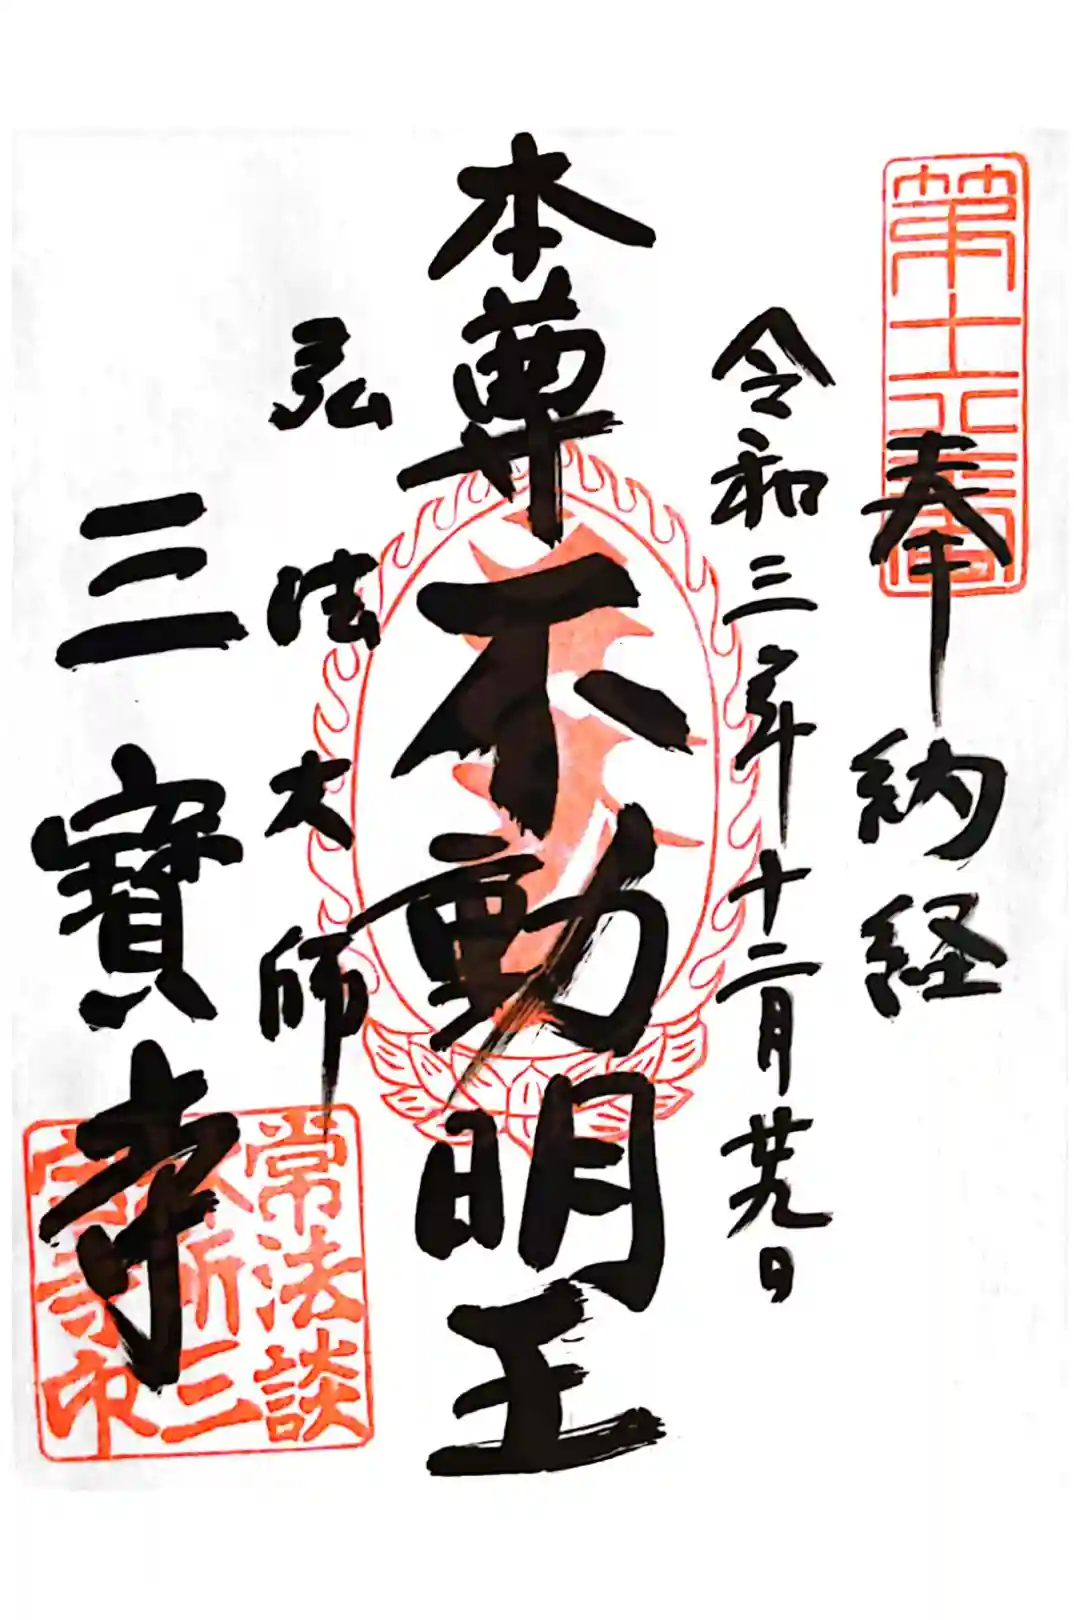 第十六番
奉納経
令和三年十二月廿九日
本尊不動明王
弘法大師
三寳寺
常法談
林所三
宝寺印